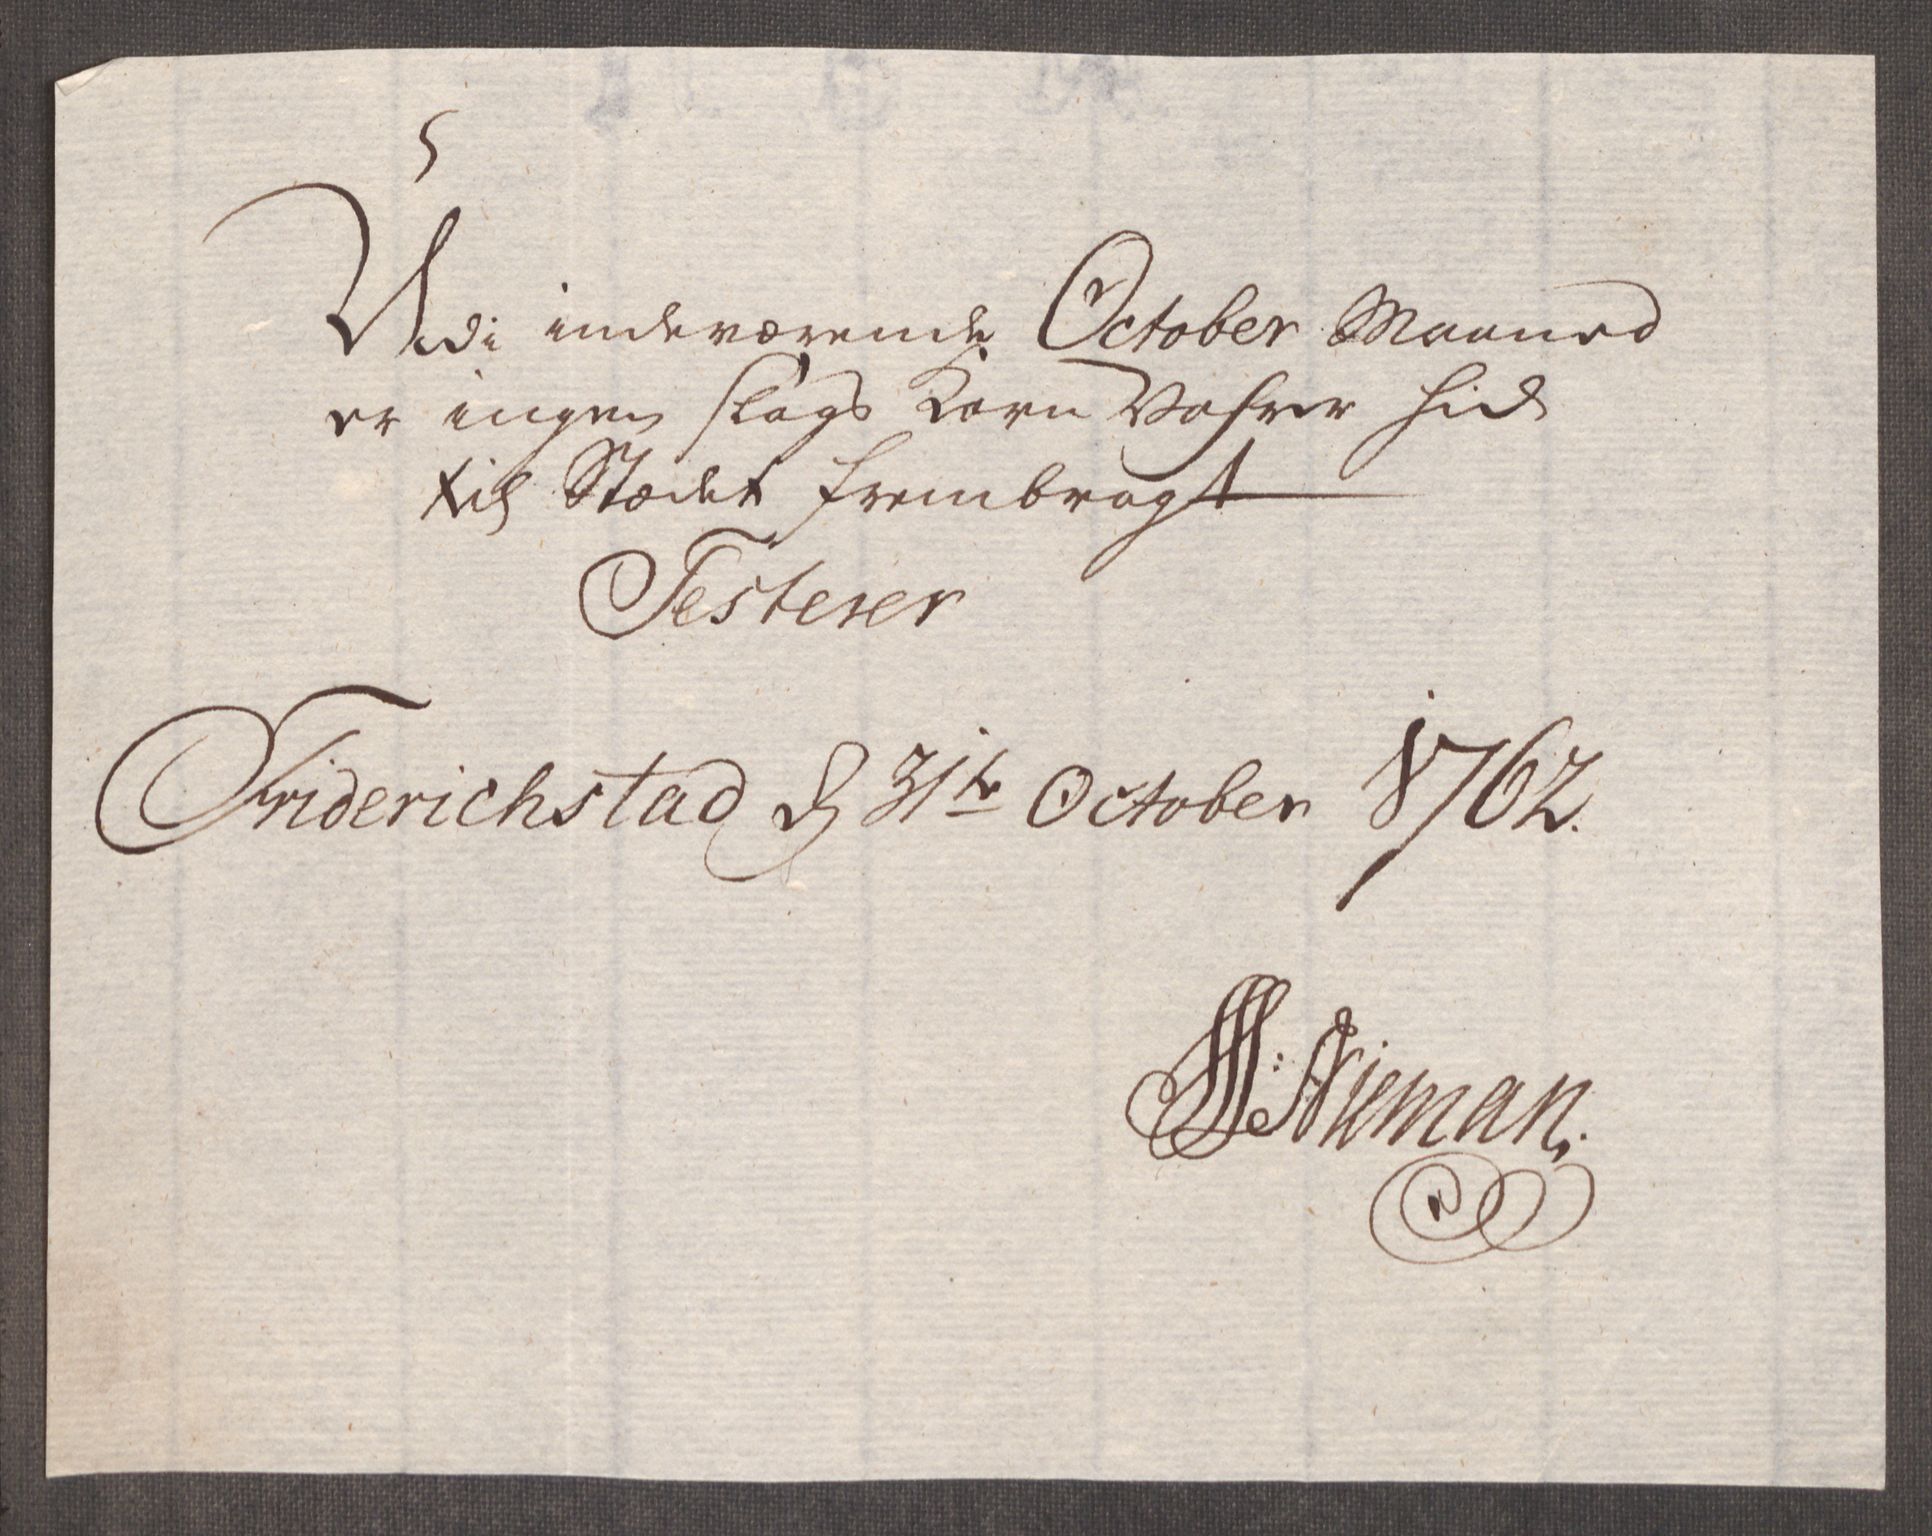 Udi indeværende October Maaned
er ingen slags Korn Vahrer hid
til Stædet frembragt
Testerer
Friderichstad d 31te October 1762.
Nieman.